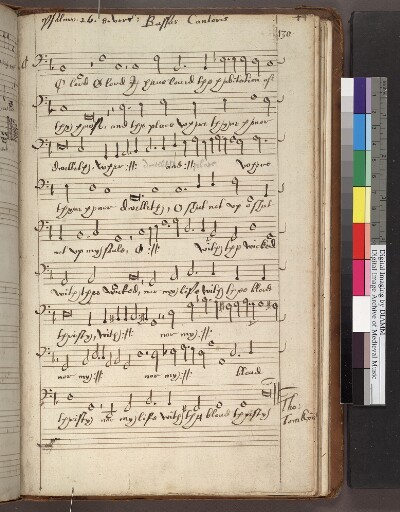 Psalme: 26. 8. vers: Basses Cantoris
130
O lord O lord I haue loued the habitation of
thy house, and the place wher thyne honor
dwelleth, wher :||: and :||: place where
thyne honor dwelleth, O shut not up o shut
not up my soule, O :||: with the wicked
with the wicked, nor my life with the blood
thirsty, with :||: nor my :||:
nor my :||: nor my :||: blood
thirsty nor my life with the blood thirsty
Tho:
Tomkins
Digital Imaging by DIAMM
Digital Image Archive of Medieval Music